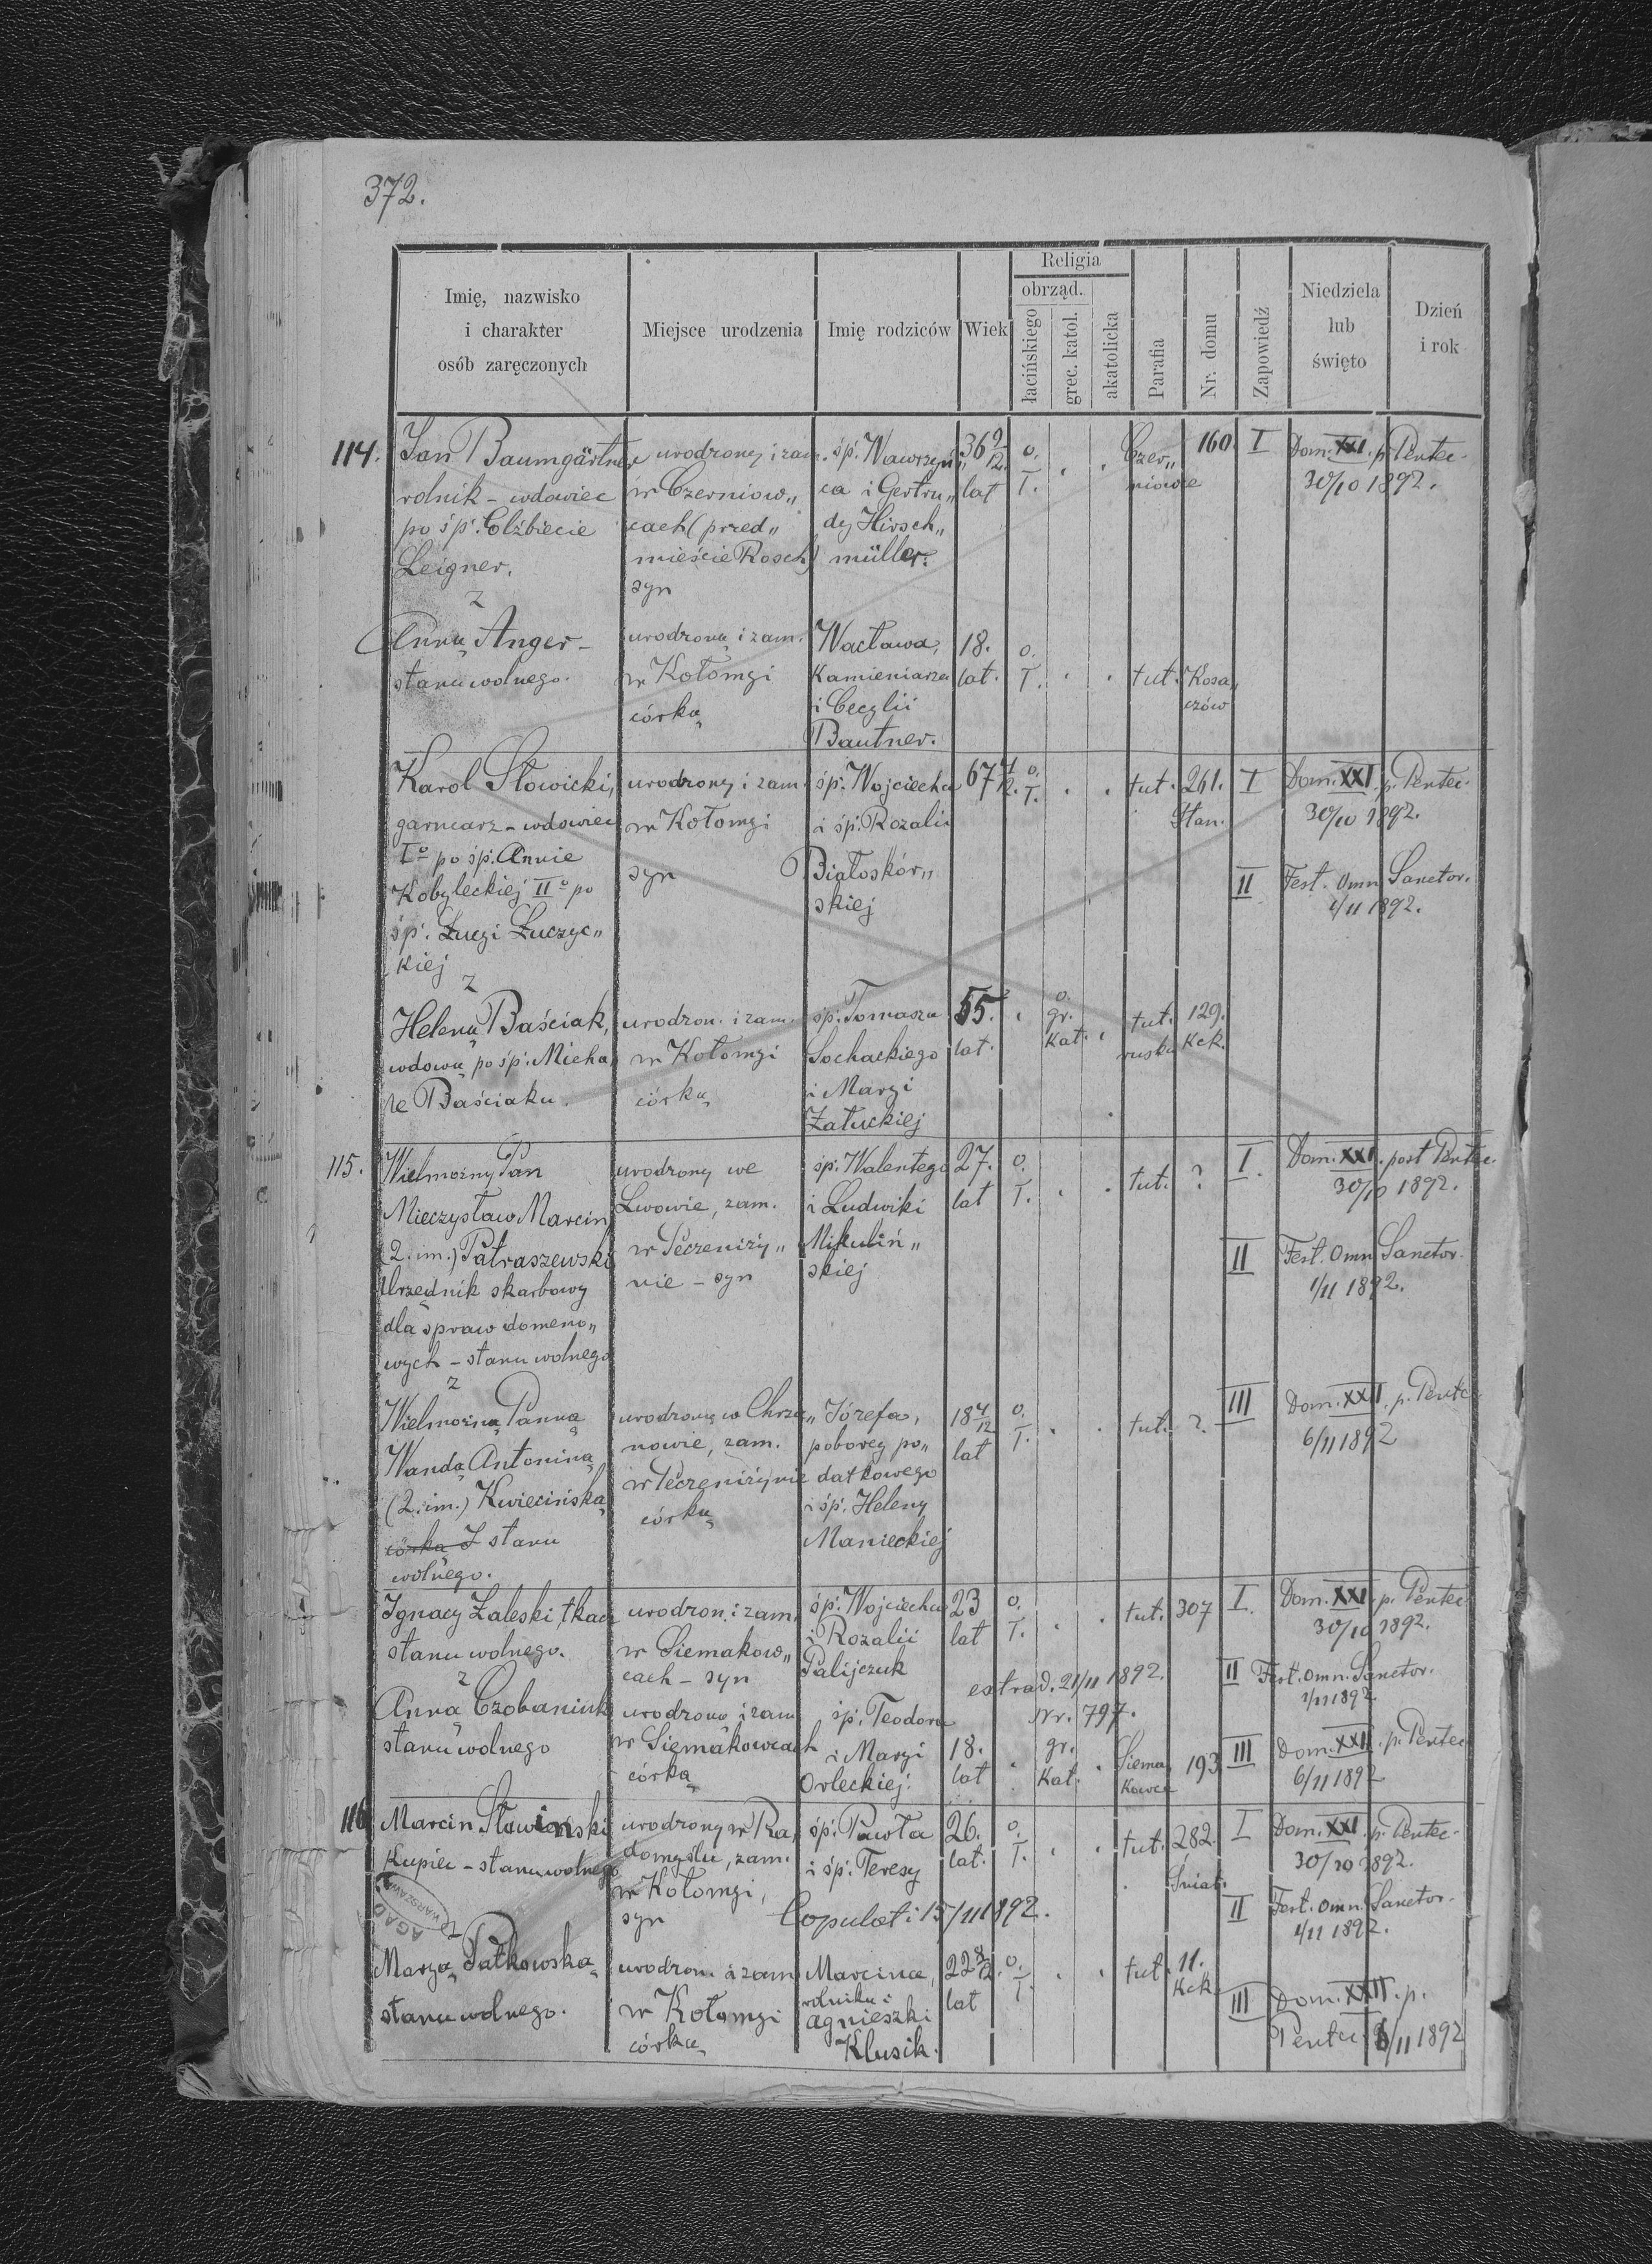 372.
Imię, nazwisko
i charakter
osób zaręczonych
Miejsce urodzenia
Imię rodziców
Wiek
Religia
obrząd.
łacińskiego
grec. katol.
akatolicka
Parafia
Nr. domu
Zapowiedź
Niedziela
lub
święto
Dzień
i rok
114. Jan Baumgärtner urodzony i zam. śp. Wawrzyń„ 36 9/12. o. Czer„ 160. I Dom. XXI. p. Pentec.
rolnik - wdowiec w Czerniow„ ca i Gertru„ lat ł. niowce 30/10 1892.
po śp. Elżbiecie cach (przed„ dy Hirsch„
Leigner. mieście Rosch) müller.
z syn
Anną Anger - urodzoną i zam. Wacława, 18. o.
stanu wolnego. w Kołomyi Kamieniarza lat. ł. tut. Kosa„
córką i Cecylii czów
Bautner.
Karol Słowicki, urodzony i zam. śp. Wojciecha 67 4/12. o. tut. 261. I Dom. XXI. p. Pentec.
garncarz - wdowiec w Kołomyi i śp. Rozalii ł. Stan. 30/10 1892.
I° po śp. Annie syn Białoskór„ II Fest. Omn. Sanctor.
Kobyleckiej II° po skiej 1/11 1892.
śp. Łucyi Łuczyc„
kiej
z
Heleną Baściak, urodzon. i zam. śp. Tomasza 55. o. gr. tut. 129.
wdową po śp. Micha w Kołomyi Sochackiego lat. Kat. ruska Kck.
le Baściaku. córką i Maryi
Załuckiej
115. Wielmożny Pan urodzony we śp. Walentego 27. o. tut. ? I. Dom. XXI. post Pentec.
Mieczysław Marcin Lwowie, zam. i Ludwiki lat ł. 30/10 1892.
(2. im.) Patraszewski w Peczeniży„ Mikuliń„ II Fest. Omn. Sanctor.
Urzędnik skarbowy nie - syn skiej 1/11 1892.
dla spraw domeno„
wych - stanu wolnego
z
Wielmożną Panną urodzoną w Chrza„ Józefa, 18 4/12 o. tut. ?. III Dom. XXII. p. Pentec.
Wandą Antoniną nowie, zam. poborcy po„ lat ł. 6/11 1892
(2. im.) Kwiecińską w Peczeniżynie datkowego
córką stanu córką i śp. Heleny
wolnego. Manieckiej
Ignacy Zaleski, tkacz urodzon. i zam. śp. Wojciecha 23 o. tut. 307 I. Dom. XXI. p. Pentec.
stanu wolnego. w Siemakow„ i Rozalii lat ł. 30/10 1892.
z cach - syn Palijczuk extrad. 21/11 1892. II Fest. Omn. Sanctor.
Nr. 797. 1/11 1892
Anną Czobaniuk urodzoną i zam śp. Teodora 18. gr. Siema 193 III Dom. XXII. p. Pentec.
stanu wolnego w Siemakowcach i Maryi lat Kat. kowce 6/11 1892
córką Orleckiej.
116 Marcin Słowieński urodzony w Ra„ śp. Pawła 26. o. tut. 282. I Dom. XXI. p. Pentec.
Kupiec - stanu wolnego domyślu, zam. i śp. Teresy lat. ł. Śniat. 30/10 1892.
z w Kołomyi, II Fest. Omn. Sanctor.
syn Copulati 15/11 1892. 1/11 1892.
AGAD
WARSZAWA
Maryą Pałkowską urodzon. i zam Marcina, 22 8/12. o. tut. 11.
stanu wolnego. w Kołomyi rolnika i lat ł. Kck III Dom. XXII. p.
córką Agnieszki Pentec. 6/11 1892
Klusik.